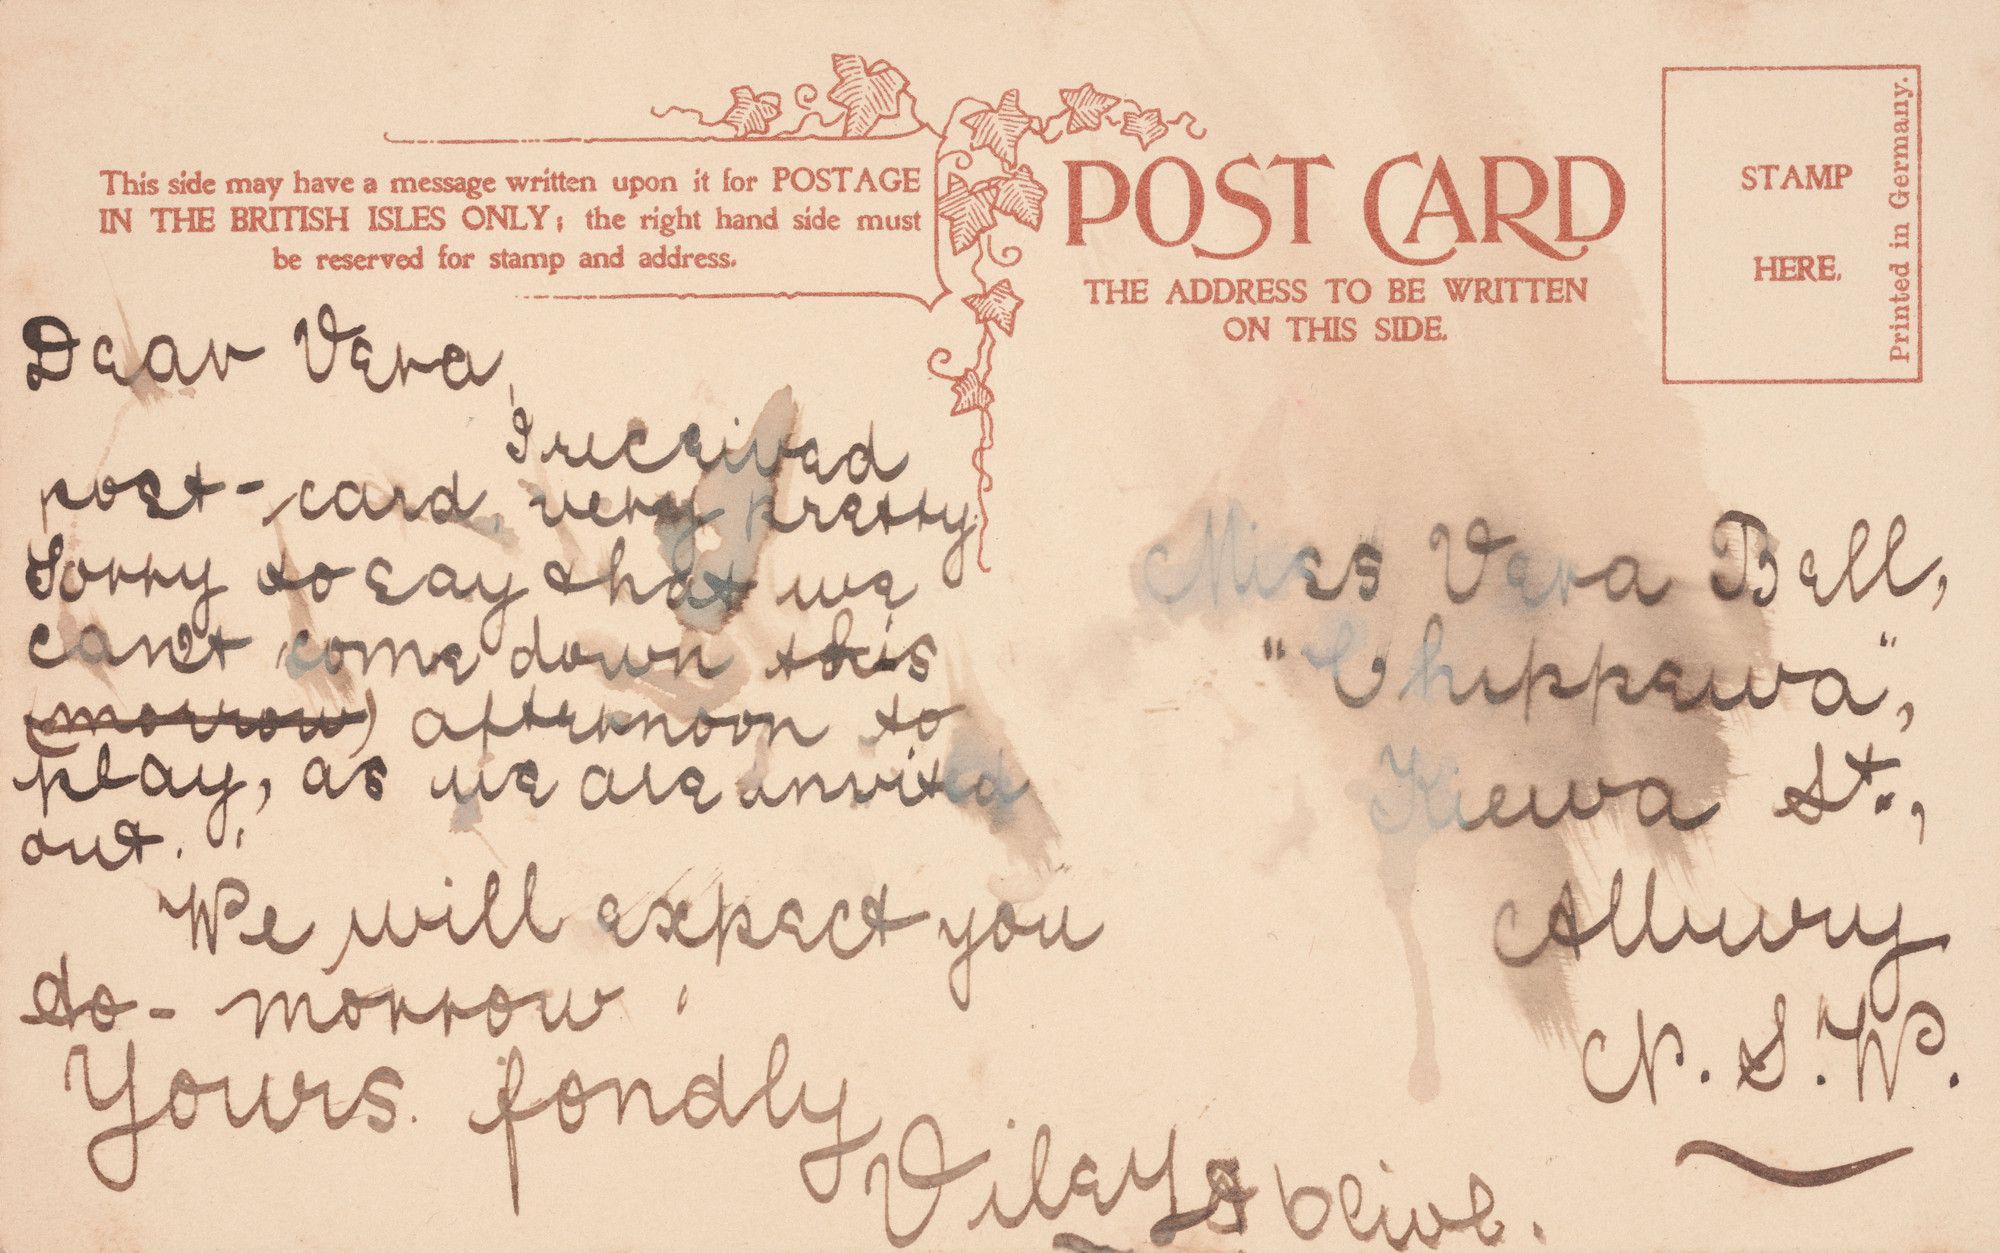 This side may have a message written upon it for POSTAGE
IN THE BRITISH ISLES ONLY; the right hand side must
be reserved for stamp and address.
Dear Vera,
I received
post-card, very pretty
Sorry to say that we
can't come down this
(morrow) afternoon to
play, as we are invited
out.
We will expect you
to-morrow.
Yours fondly
& Olive.
POST CARD
THE ADDRESS TO BE WRITTEN
ON THIS SIDE.
STAMP
HERE.
Printed in Germany.
Miss Vera Bell,
"Chippewa",
Kiewa St.,
Albury
N.S.W.